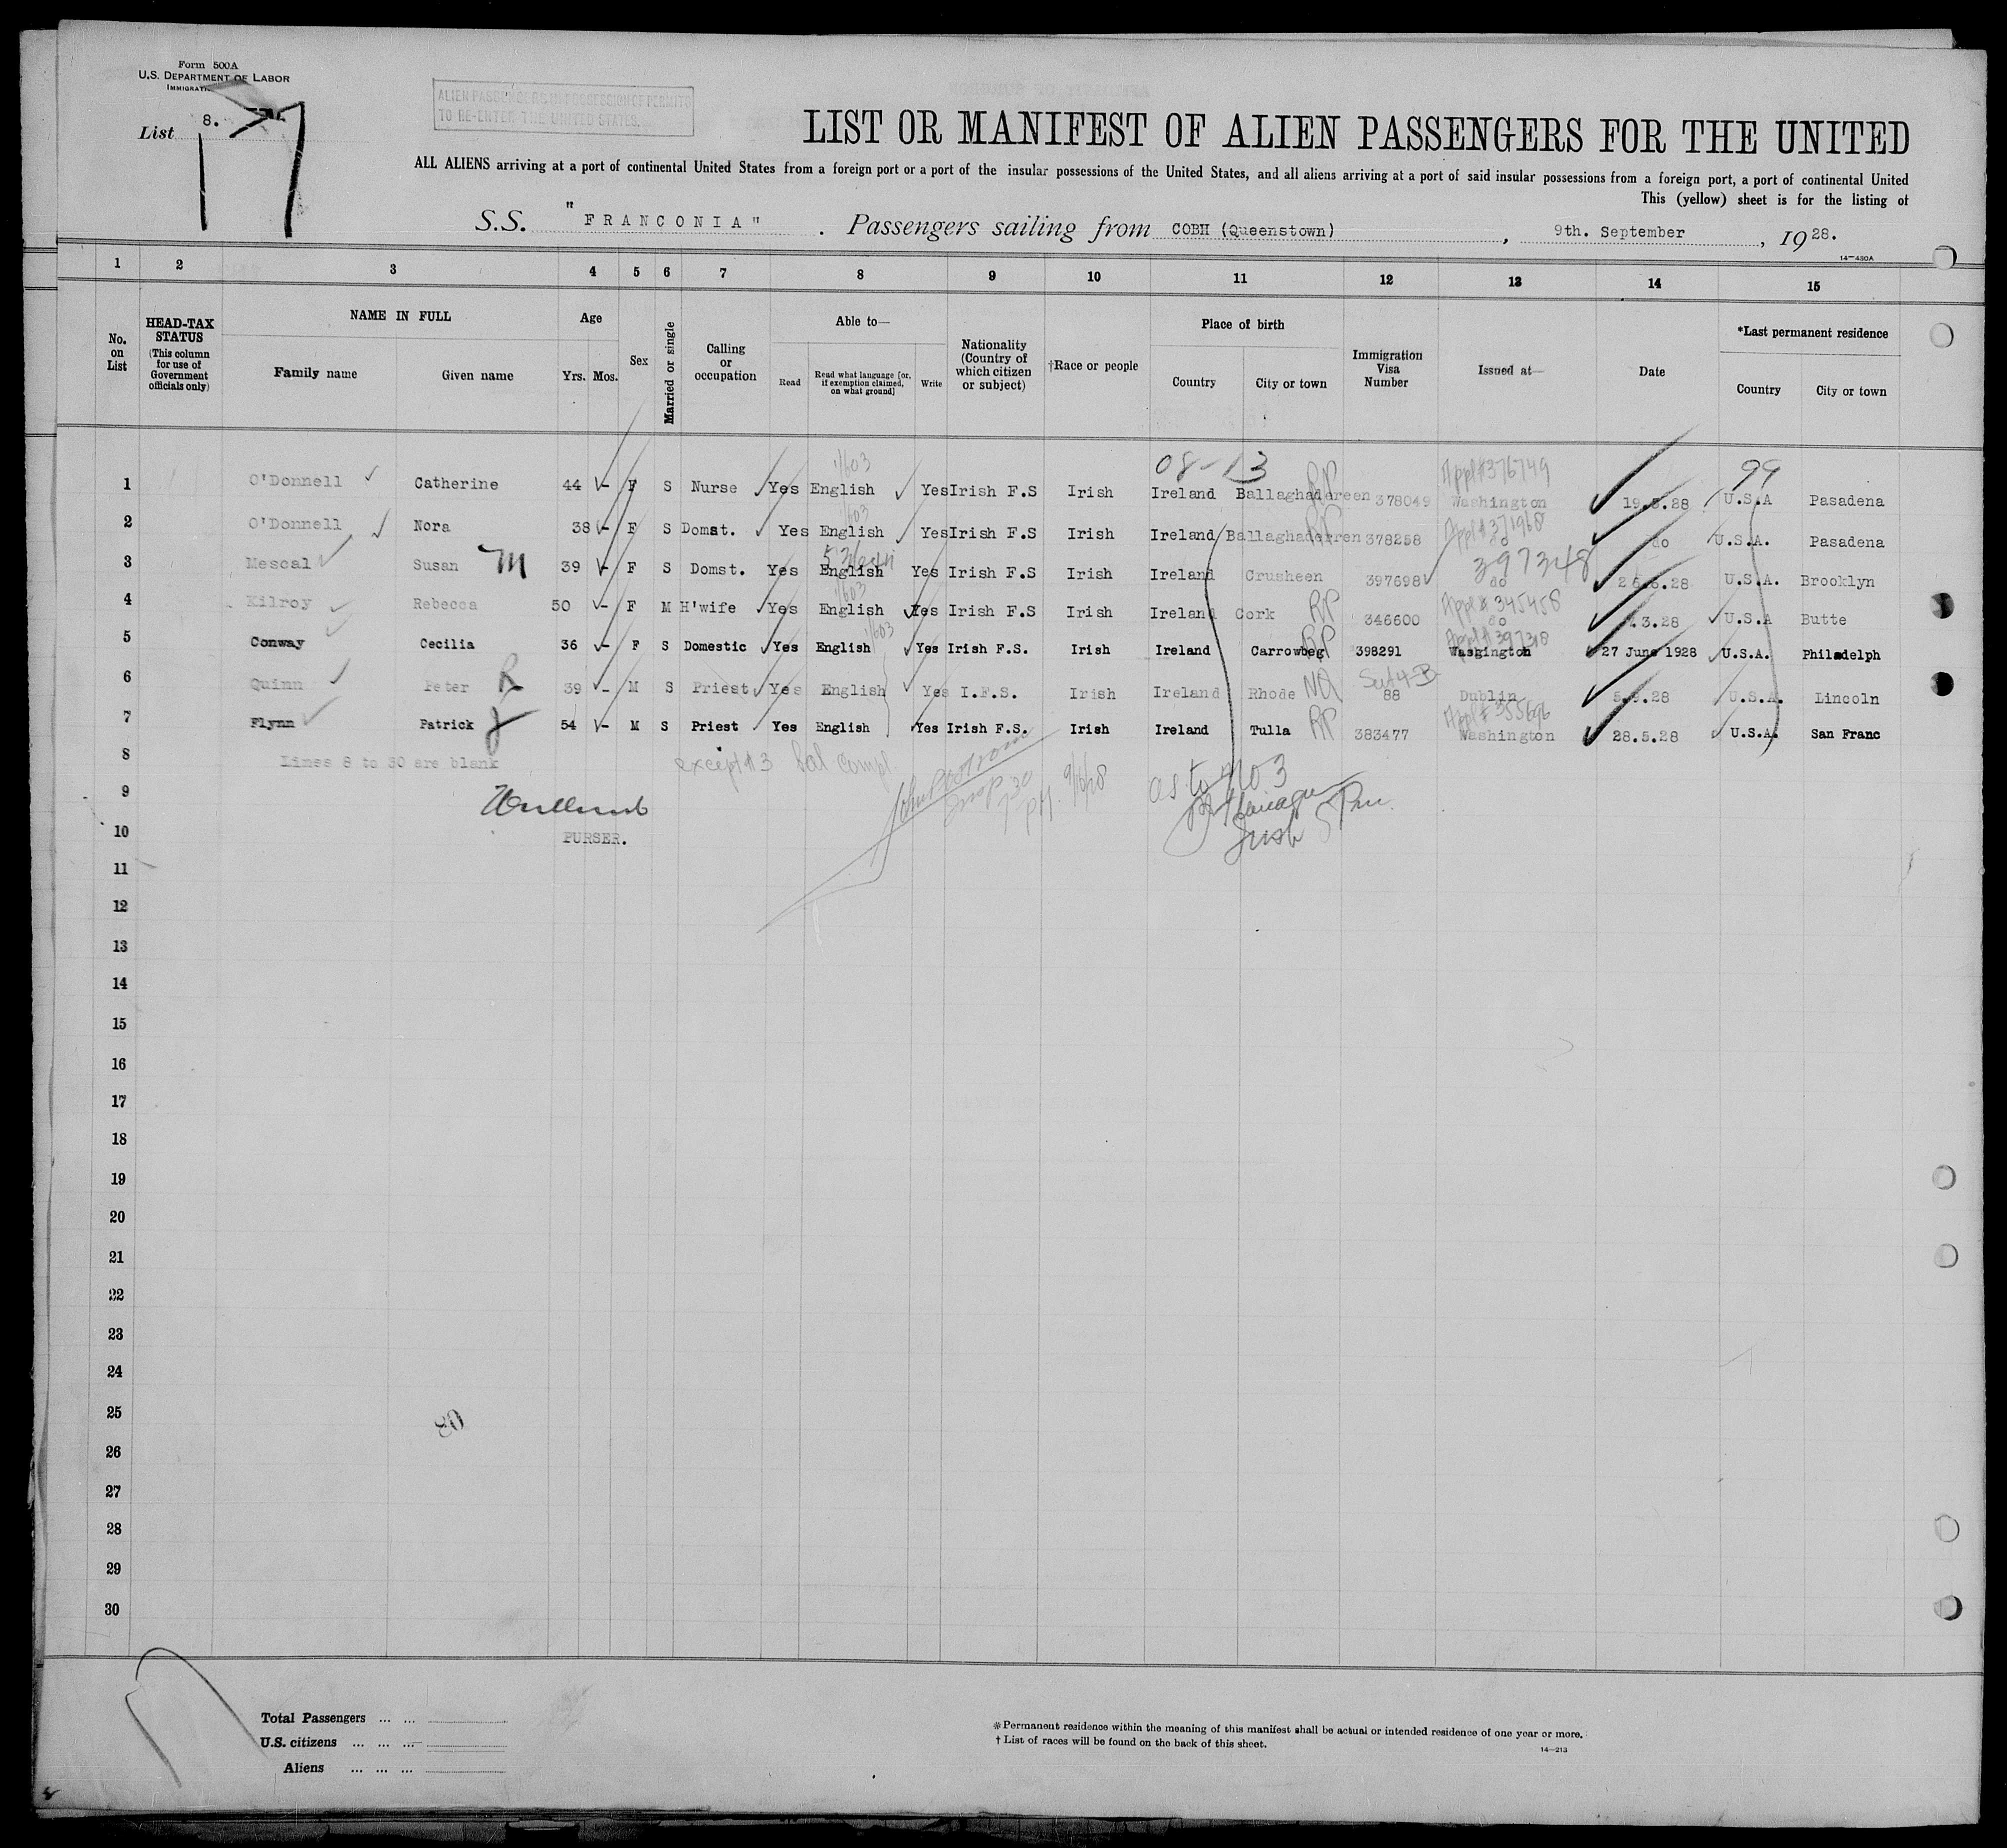 Form 500A
U.S. DEPARTMENT OF LABOR
List 8.
17
ALIEN PASSENGERS IN POSSESSION OF PERMITS
TO RE-ENTER THE UNITED STATES.
LIST OR MANIFEST OF ALIEN PASSENGERS FOR THE UNITED
ALL ALIENS arriving at a port of continental United States from a foreign port or a port of the insular possessions of the United States, and all aliens arriving at a port of said insular possessions from a foreign port, a port of continental United
This (yellow) sheet is for the listing of
S.S. "FRANCONIA" . Passengers sailing from COBH (Queenstown), 9th. September, 1928.
14—480A
1 2 3 4 5 6 7 8 9 10 11 12 13 14 15
No. on List
HEAD-TAX STATUS (This column for use of Government officials only)
NAME IN FULL Family name Given name
Age Yrs. Mos.
Sex
Married or single
Calling or occupation
Able to— Read Read what language [or, if exemption claimed, on what ground] Write
Nationality (Country of which citizen or subject)
†Race or people
Place of birth Country City or town
Immigration Visa Number
Issued at—
Date
*Last permanent residence Country City or town
08-13 99
1 O'Donnell Catherine 44 - F S Nurse Yes English Yes Irish F.S Irish Ireland Ballaghadereen RP 378049 Appl#376749 Washington 19.5.28 U.S.A Pasadena
2 O'Donnell Nora 38 - F S Domst. Yes English Yes Irish F.S Irish Ireland Ballaghaderren RP 378258 do do U.S.A. Pasadena
3 Mescal Susan M 39 - F S Domst. Yes English Yes Irish F.S Irish Ireland Crusheen 397698 397348 do U.S.A. Brooklyn
4 Kilroy Rebecca 50 - F M H'wife Yes English Yes Irish F.S Irish Ireland Cork RP 346600 Appl#345458 do U.S.A Butte
5 Conway Cecilia 36 - F S Domestic Yes English Yes Irish F.S. Irish Ireland Carrowbeg RP 398291 Washington 27 June 1928 U.S.A. Philadelph
6 Quinn Peter 39 - M S Priest Yes English Yes I.F.S. Irish Ireland Rhode NQ 88 Dublin U.S.A. Lincoln
7 Flynn Patrick J 54 - M S Priest Yes English Yes Irish F.S. Irish Ireland Tulla RP 383477 Appl#355696 Washington 28.5.28 U.S.A. San Franc
8 Lines 8 to 30 are blank except #3 bal compl
9 as to No 3
10 PURSER.
11
12
13
14
15
16
17
18
19
20
21
22
23
24
25
26
27
28
29
30
Total Passengers ... ...
U.S. citizens ... ... ...
Aliens ... ... ...
* Permanent residence within the meaning of this manifest shall be actual or intended residence of one year or more.
† List of races will be found on the back of this sheet.
14—213